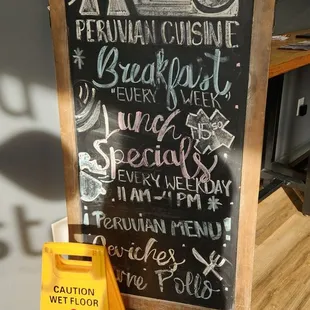 PERUVIAN CUISINE
Breakfast
"EVERY WEEK
Lunch
Specials
EVERY WEEKDAY
11 AM - 4 PM
PERUVIAN MENU
Ceviches
Pollo
CAUTION
WET FLOOR